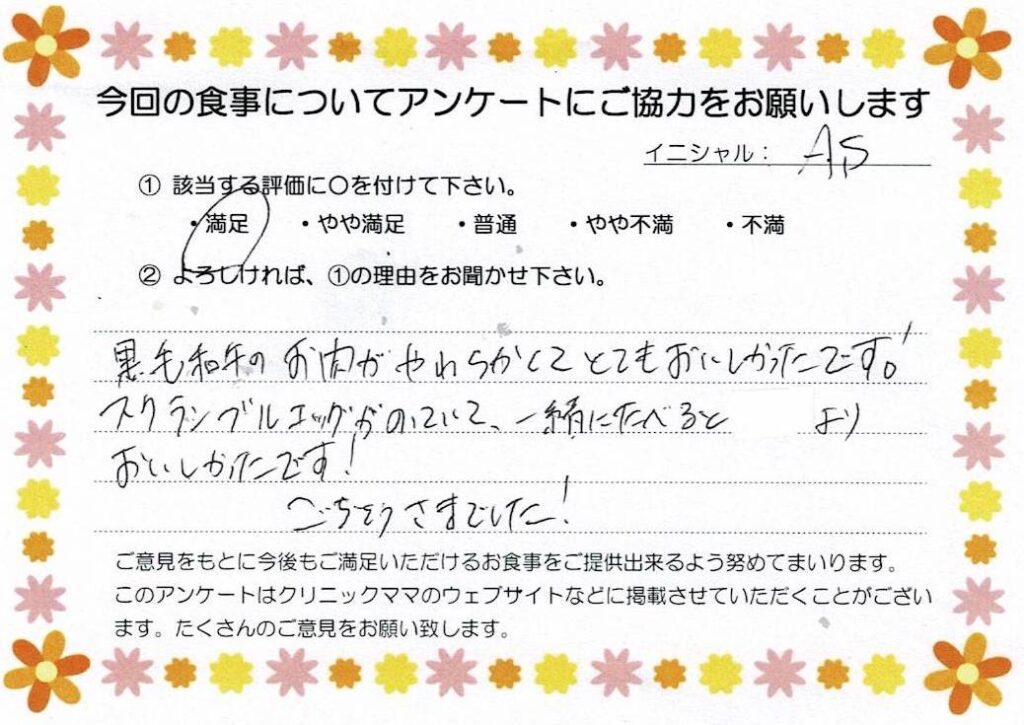 今回の食事についてアンケートにご協力をお願いします
イニシャル： AS
① 該当する評価に〇を付けて下さい。
・満足 ・やや満足 ・普通 ・やや不満 ・不満
② よろしければ、①の理由をお聞かせ下さい。
黒毛和牛のお肉がやわらかくてとてもおいしかったです。!
スクランブルエッグがのっていて、一緒にたべると より
おいしかったです!
ごちそうさまでした!
ご意見をもとに今後もご満足いただけるお食事をご提供出来るよう努めてまいります。
このアンケートはクリニックママのウェブサイトなどに掲載させていただくことがござい
ます。たくさんのご意見をお願い致します。